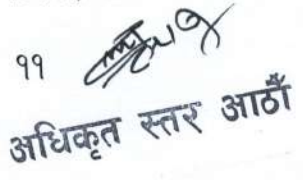 ११
अधिकृत स्तर आठौं